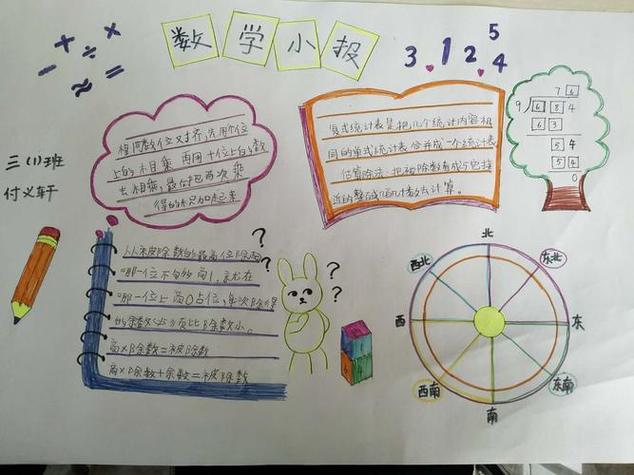 + ÷ ×
- ≈ =
数学小报
3.12.4
5
三(1)班
付义轩
相同数位对齐,先用个位
上的
相乘 再用十位上的数
去相乘,最后把两次乘
得的积加起来
复式统计表是把几个统计内容相
同的单式统计表合并成一个统计表
估算除法:把被除数看成与它接
近的整百
数去计算。
76
9 684
63
54
54
0
从被除数的最高位除起
哪一位不够商1,就在
哪一位上商0占位,每次除得
的余数必须比除数小。
商×除数=被除数
商×除数+余数=被除数
?
?
?
?
北
东北
东
东南
南
西南
西
西北